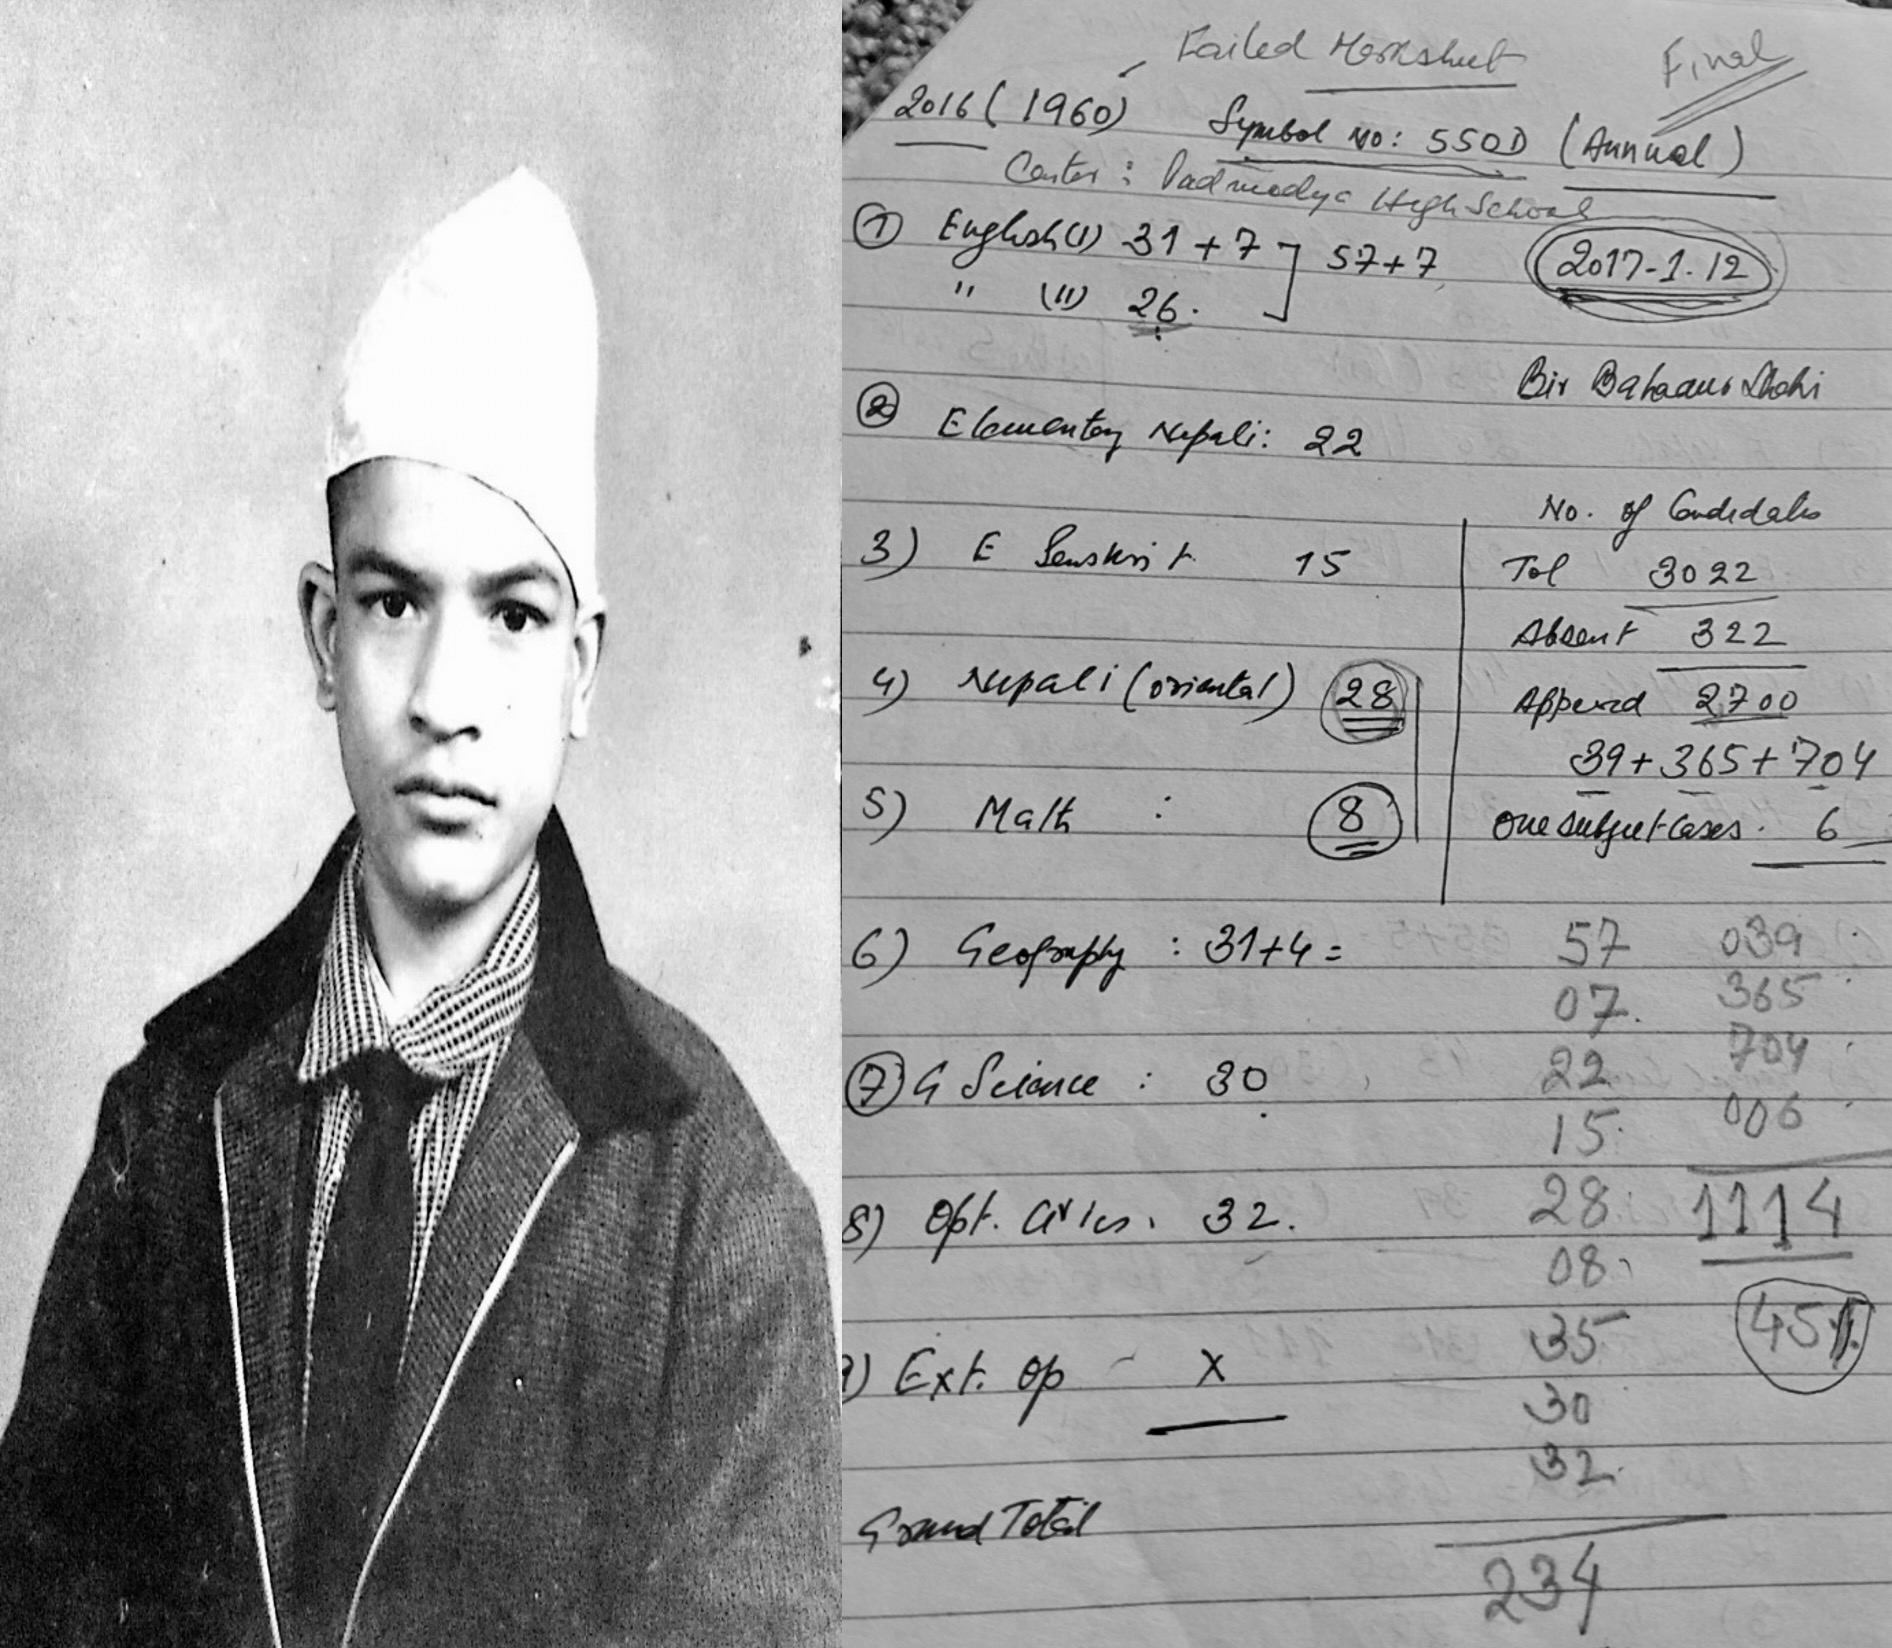 Failed Marksheet Final
2016 (1960) Symbol No: 550D (Annual)
Center : Padmodya High School
① English (I) 31 + 7 ] 57 + 7
" (II) 26.
2017-1.12
Bir Bahadur Shahi
② Elementary Nepali: 22
No. of Candidates
3) E Sanskrit 15
Tol 3022
Absent 322
4) Nepali (oriental) 28
Appered 2700
39 + 365 + 704
5) Math : 8
One Subject Cases . 6
6) Geography : 31+4 =
57 039
07. 365
704
⑦ G Science : 30
22
15. 006
8) Opt. Civics. 32.
28 1114
08.
35 45%
9) Ext. Op - X
30
32.
Grand Total
234